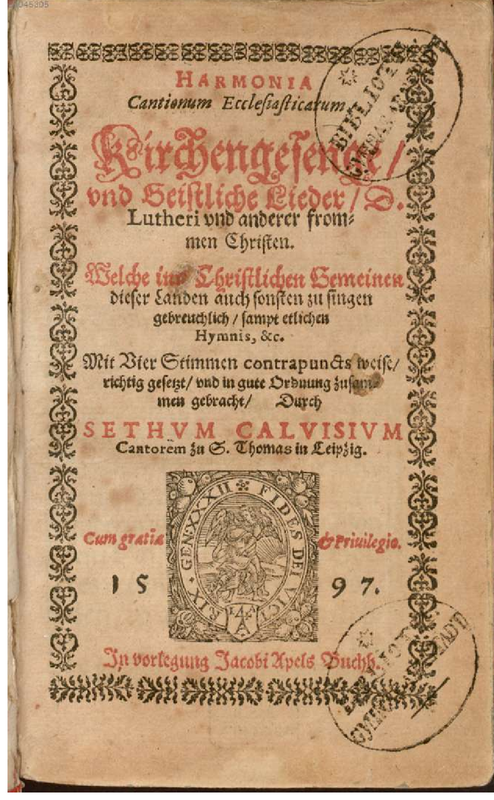 HARMONIA
Cantionum Ecclesiasticarum
Kirchengesenge/
vnd Geistliche Lieder/ D.
Lutheri vnd anderer from⸗
men Christen.
Welche inn Christlichen Gemeinen
dieser Landen auch sonsten zu singen
gebreuchlich/ sampt etlichen
Hymnis, &c.
Mit Vier Stimmen contrapuncts weise/
richtig gesetzt/ vnd in gute Ordnung zusam⸗
men gebracht/ Durch
SETHVM CALVISIVM
Cantorem zu S. Thomas in Leipzig.
GEN. XXXII FIDES DEI
Cum gratia & Priuilegio.
15 97.
In vorlegung Jacobi Apels Buchh.